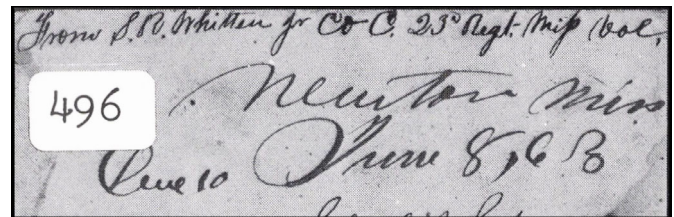 From S. R. Whitten Jr Co C. 23d Regt. Miss Vol.
496
Newton Miss
Due 10 June 8, 63